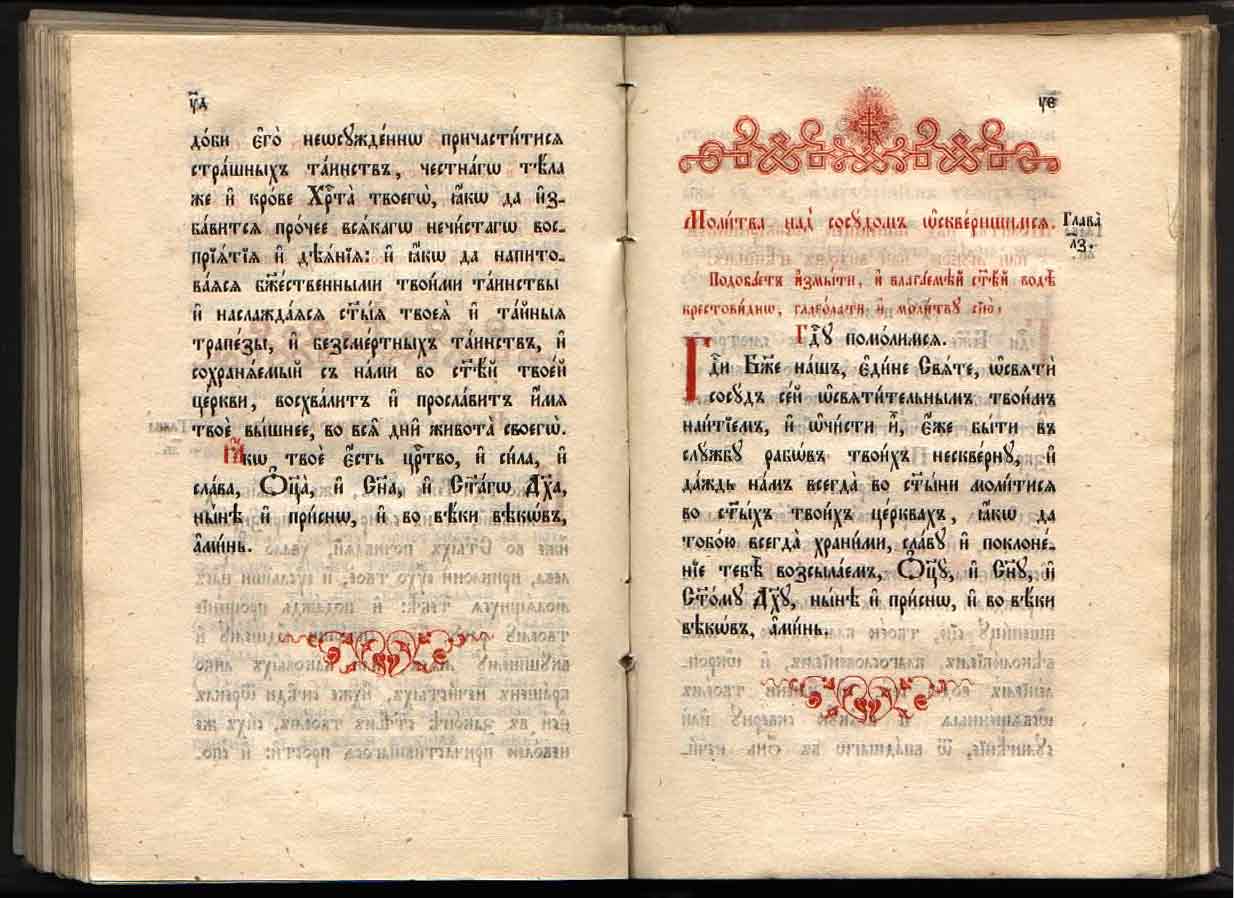 ч҃д
до́би є҆гѡ̀ неѡсꙋжде́ннѡ причасти́тисѧ
стра́шныхъ та́инствъ, честна́гѡ тѣ́ла
же и҆ кро́ве Хрⷭ҇та̀ твоегѡ̀, ꙗ҆́кѡ да и҆з-
ба́витсѧ про́чее всѧ́кагѡ нечи́стагѡ вос-
прїѧ́тїѧ и҆ дѣѧ́нїѧ: и҆ ꙗ҆́кѡ да напито-
ва́ѧсѧ бж҃е́ственными твои́ми та́инствы
и҆ наслажда́ѧсѧ ст҃ы́ѧ твоеѧ̀ и҆ та́йныѧ
трапе́зы, и҆ безсме́ртныхъ та́инствъ, и҆
сохранѧ́емый съ на́ми во ст҃ѣ́й твое́й
це́ркви, восхва́литъ и҆ просла́витъ и҆́мѧ
твоѐ вы́шнее, во всѧ̑ дни̑ живота̀ своегѡ̀.
Ꙗ҆́кѡ твоѐ є҆́сть црⷭ҇тво, и҆ си́ла, и҆
сла́ва, Ѻ҆ц҃а̀, и҆ Сн҃а, и҆ Ст҃а́гѡ Дх҃а,
ны́нѣ и҆ при́снѡ, и҆ во вѣ́ки вѣкѡ́въ,
а҆ми́нь.
ч҃є
Моли́тва над̾ сосꙋ́домъ ѡ҆скверншимсѧ.
Глава̀
л҃з.
Подоба́етъ и҆змы́ти, и҆ влага́емѣй ст҃ѣ́й водѣ̀
крестови́днѡ, глаго́лати и҆ моли́твꙋ сїю̀,
Гдⷭ҇ꙋ помо́лимсѧ.
Гдⷭ҇и Бж҃е на́шъ, є҆ди́не Свѧ́те, ѡ҆свѧтѝ
сосꙋ́дъ се́й ѡ҆свѧти́тельнымъ твои́мъ
наи́тїемъ, и҆ ѡ҆чи́сти и҆̀, є҆́же бы́ти въ
слꙋ́жбꙋ рабѡ́въ твои́хъ нескве́рнꙋ, и҆
да́ждь на́мъ всегда̀ во ст҃ы́ни моли́тисѧ
во ст҃ы́хъ твои́хъ це́рквахъ, ꙗ҆́кѡ да
тобо́ю всегда̀ храни́ми, сла́вꙋ и҆ поклоне́-
нїе тебѣ̀ возсыла́емъ, Ѻ҆ц҃ꙋ̀, и҆ Сн҃ꙋ, и҆
Ст҃о́мꙋ Дх҃ꙋ, ны́нѣ и҆ при́снѡ, и҆ во вѣ́ки
вѣкѡ́въ, а҆ми́нь.